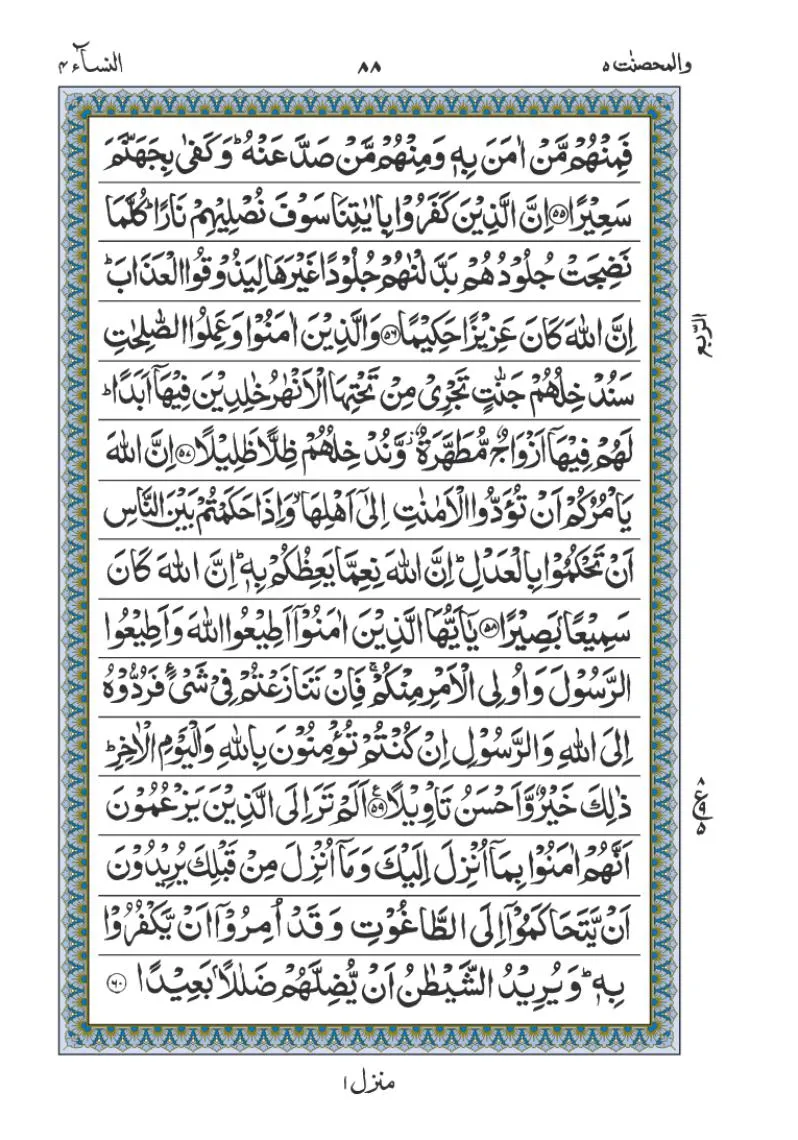 والمحصنٰت ٥ ٨٨ النسآء ٤
فَمِنْهُمْ مَّنْ اٰمَنَ بِهٖ وَمِنْهُمْ مَّنْ صَدَّ عَنْهُ ؕ وَكَفٰى بِجَهَنَّمَ
سَعِيْرًا ﴿۵۵﴾ اِنَّ الَّذِيْنَ كَفَرُوْا بِاٰيٰتِنَا سَوْفَ نُصْلِيْهِمْ نَارًا ؕ كُلَّمَا
نَضِجَتْ جُلُوْدُهُمْ بَدَّلْنٰهُمْ جُلُوْدًا غَيْرَهَا لِيَذُوْقُوا الْعَذَابَ ؕ
اِنَّ اللّٰهَ كَانَ عَزِيْزًا حَكِيْمًا ﴿۵۶﴾ وَالَّذِيْنَ اٰمَنُوْا وَعَمِلُوا الصّٰلِحٰتِ
الرّبع
سَنُدْخِلُهُمْ جَنّٰتٍ تَجْرِيْ مِنْ تَحْتِهَا الْاَنْهٰرُ خٰلِدِيْنَ فِيْهَاۤ اَبَدًا ؕ
لَهُمْ فِيْهَاۤ اَزْوَاجٌ مُّطَهَّرَةٌ ؗ وَّنُدْخِلُهُمْ ظِلًّا ظَلِيْلًا ﴿۵۷﴾ اِنَّ اللّٰهَ
يَاْمُرُكُمْ اَنْ تُؤَدُّوا الْاَمٰنٰتِ اِلٰۤى اَهْلِهَا ۙ وَاِذَا حَكَمْتُمْ بَيْنَ النَّاسِ
اَنْ تَحْكُمُوْا بِالْعَدْلِ ؕ اِنَّ اللّٰهَ نِعِمَّا يَعِظُكُمْ بِهٖ ؕ اِنَّ اللّٰهَ كَانَ
سَمِيْعًۢا بَصِيْرًا ﴿۵۸﴾ يٰۤاَيُّهَا الَّذِيْنَ اٰمَنُوْۤا اَطِيْعُوا اللّٰهَ وَاَطِيْعُوا
الرَّسُوْلَ وَاُولِى الْاَمْرِ مِنْكُمْ ۚ فَاِنْ تَنَازَعْتُمْ فِيْ شَيْءٍ فَرُدُّوْهُ
اِلَى اللّٰهِ وَالرَّسُوْلِ اِنْ كُنْتُمْ تُؤْمِنُوْنَ بِاللّٰهِ وَالْيَوْمِ الْاٰخِرِ ؕ
ذٰلِكَ خَيْرٌ وَّاَحْسَنُ تَاْوِيْلًا ﴿۵۹﴾ اَلَمْ تَرَ اِلَى الَّذِيْنَ يَزْعُمُوْنَ
٨ ع ٩ ٥
اَنَّهُمْ اٰمَنُوْا بِمَاۤ اُنْزِلَ اِلَيْكَ وَمَاۤ اُنْزِلَ مِنْ قَبْلِكَ يُرِيْدُوْنَ
اَنْ يَّتَحَاكَمُوْۤا اِلَى الطَّاغُوْتِ وَقَدْ اُمِرُوْۤا اَنْ يَّكْفُرُوْا
بِهٖ ؕ وَيُرِيْدُ الشَّيْطٰنُ اَنْ يُّضِلَّهُمْ ضَلٰلًۢا بَعِيْدًا ﴿۶۰﴾
منزل ١